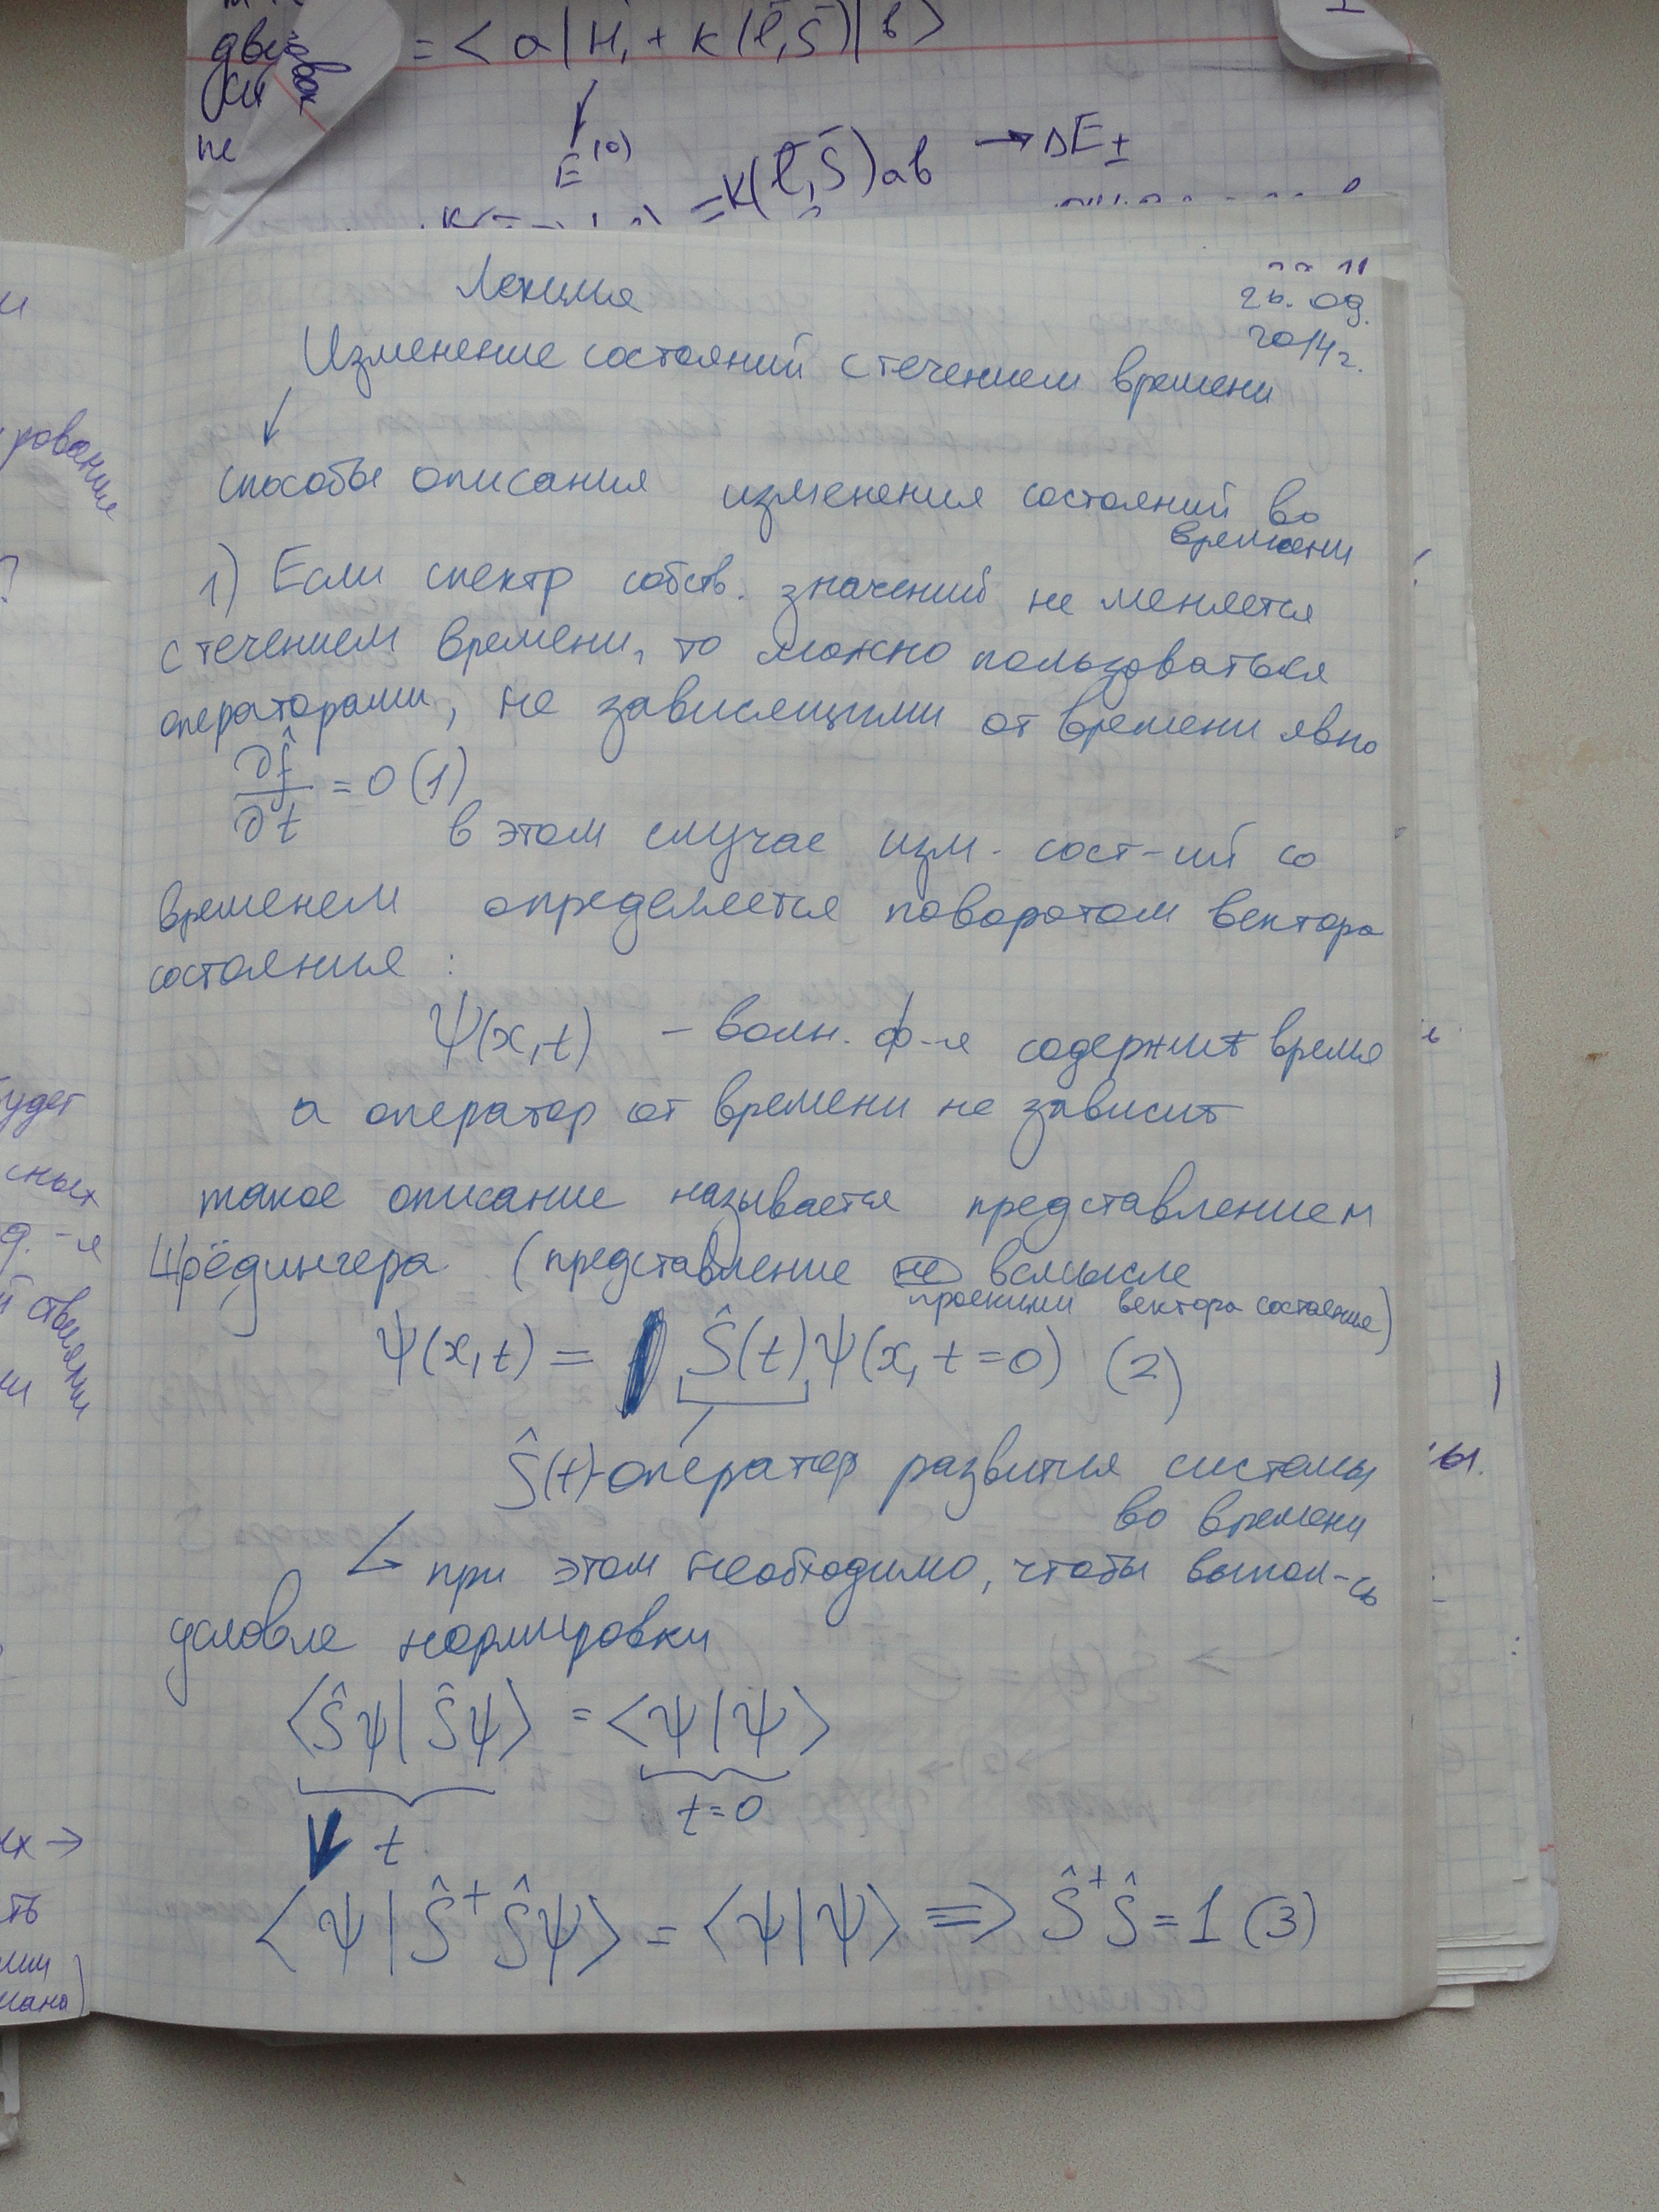 = < a | H₁ + K(l̄,S̄) | b >
не
E⁽⁰⁾
= K(l̄,S̄)ab → ΔE±
Лекция
26.09.
2014г.
Изменение состояний с течением времени
способы описания изменения состояний во
времени
1) Если спектр собств. значений не меняется
с течением времени, то можно пользоваться
операторами, не зависящими от времени явно
∂f̂/∂t = 0 (1)
в этом случае изм. сост-ий со
временем определяется поворотом вектора
состояния :
Ψ(x,t) – волн. ф-я содержит время
а оператор от времени не зависит
такое описание называется представлением
Шрёдингера (представление не всмысле
проекции вектора состояния)
Ψ(x,t) = Ŝ(t)Ψ(x,t=0) (2)
Ŝ(t)-оператор развития системы
во времени
↳ при этом необходимо, чтобы выпол-сь
условие нормировки
<Ŝψ|Ŝψ> = <ψ|ψ>
t t=0
<ψ|Ŝ⁺Ŝψ> = <ψ|ψ> => Ŝ⁺Ŝ=1 (3)
рование
?
будет
сных
→
ть